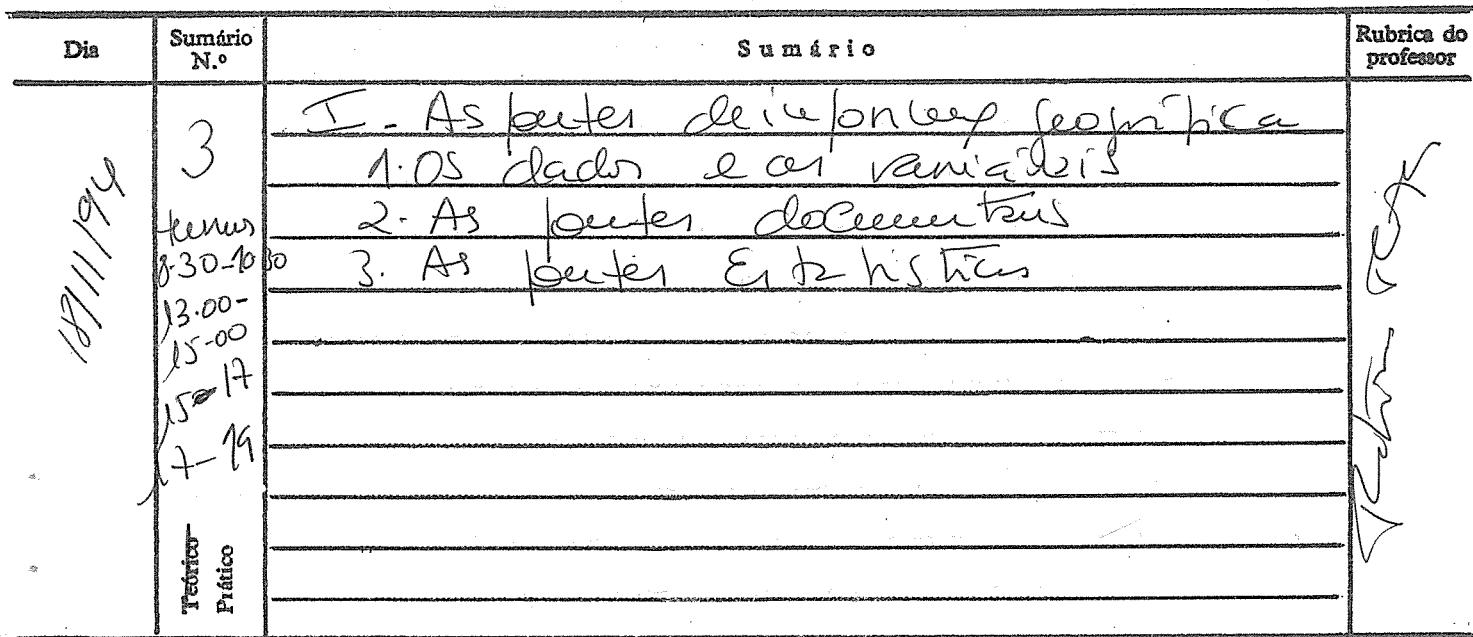 Dia
Sumário N.º
Sumário
Rubrica do professor
18/11/94
3
turmas
8.30-10.30
13.00-
15-00
15-17
17-19
Teórico
Prático
I - As fontes de informação geográfica
1. Os dados e as variáveis
2. As fontes documentais
3. As fontes Estatísticas